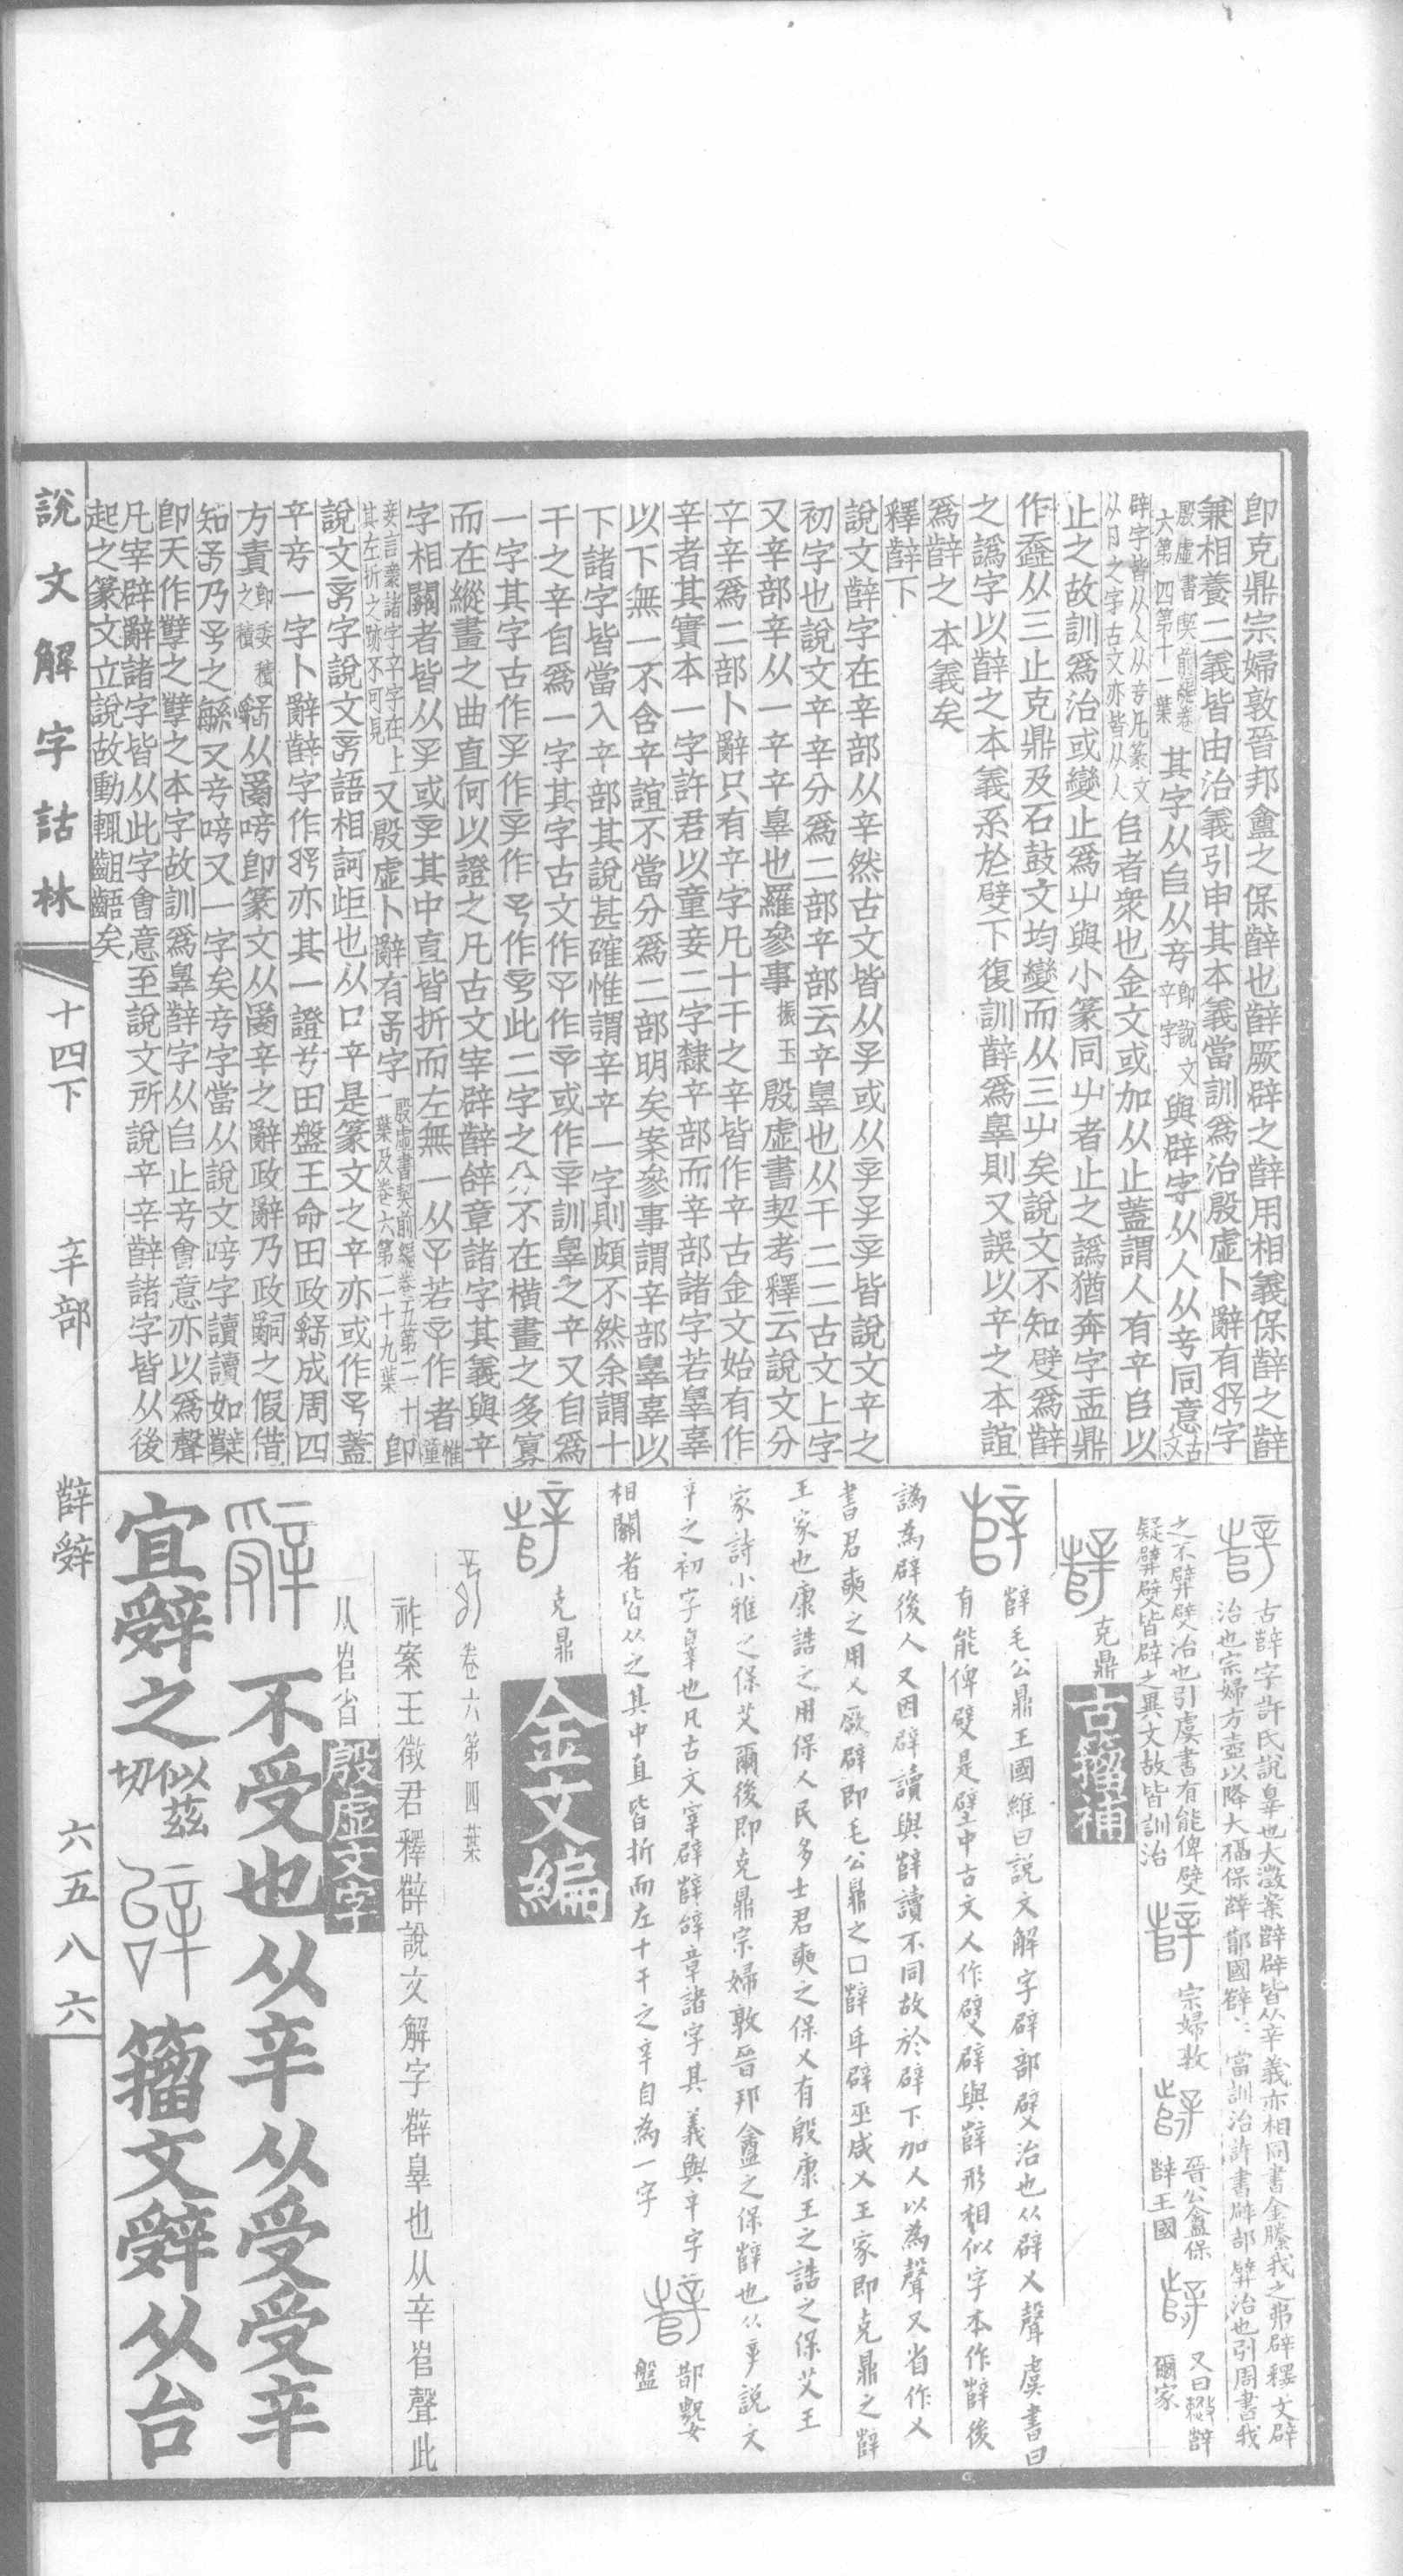 即克鼎宗婦敦晉邦盦之保辥也辥厥辟之辥用相義保辥之辥
兼相養二義皆由治義引申其本義當訓爲治殷虛卜辭有字
殷虛書契前編卷六第四第十一葉其字从𠂤从䇂即說文䇂字與辟字从人从䇂同意古文
辟字皆从人从䇂凡篆文从卪之字古文亦皆从人𠂤者衆也金文或加从止蓋謂人有䇂𠂤以
止之故訓爲治或變止爲屮與小篆同屮者止之譌猶奔字盂鼎
作从三止克鼎及石鼓文均變而从三屮矣說文不知𤔲爲辥
之譌字以辥之本義系於下復訓辥爲辠則又誤以䇂之本誼
爲辥之本義矣
釋辥下
說文辥字在辛部从辛然古文皆从或从皆說文䇂之
初字也說文䇂辛分爲二部䇂部云䇂辠也从干二二古文上字
又辛部辛从一䇂䇂辠也羅參事振玉殷虛書契考釋云說文分
䇂辛爲二部卜辭只有䇂字凡十干之辛皆作䇂古金文始有作
辛者其實本一字許君以童妾二字隸䇂部而辛部諸字若辠辜
以下無一不含䇂誼不當分爲二部明矣案參事謂辛部辠辜以
下諸字皆當入䇂部其說甚確惟謂辛䇂一字則頗不然余謂十
干之辛自爲一字其字古文作作或作訓辠之䇂又自爲
一字其字古作作作作此二字之分不在橫畫之多寡
而在縱畫之曲直何以證之凡古文宰辟辥辝章諸字其義與䇂
字相關者皆从或其中直皆折而左無一从若作者惟童
妾言䇂諸字䇂字在上其左折之跡不可見又殷虛卜辭有字殷虛書契前編卷五第二十一葉及卷六第二十九葉即
說文字說文語相訶歫也从口䇂是篆文之䇂亦或作蓋
䇂䇂一字卜辭辥字作亦其一證兮田盤王命田政成周四
方責即委積之積从即篆文从𤔔辛之辭政辭乃政嗣之假借
知乃之又䇂又一字矣䇂字當从說文字讀讀如櫱
即天作孼之孼之本字故訓爲辠辥字从𠂤止䇂會意亦以爲聲
凡宰辟辭諸字皆从此字會意至說文所說䇂辛辥諸字皆从後
起之篆文立說故動輒齟齬矣
古辥字許氏說辠也大澂案辥辟皆从辛義亦相同書金縢我之弗辟釋文辟
治也宗婦方壺以降大福保辥鄁國辥當訓治許書辟部𤔲治也引周書我
之不𤔲治也引虞書有能俾
疑皆辟之異文故皆訓治
宗婦敦
晉公盦保辥王國
又曰辥爾家
克鼎
古籀補
辥毛公鼎王國維曰說文解字辟部治也从辟乂聲虞書曰
有能俾是壁中古文乂作辟與辥形相似字本作辥後
譌爲辟後人又因辟讀與辥讀不同故於辟下加乂以爲聲又省作乂
書君奭之用乂厥辟即毛公鼎之口辥厥辟巫咸乂王家即克鼎之辥
王家也康誥之用保乂民多士君奭之保乂有殷康王之誥之保乂王
家詩小雅之保艾爾後即克鼎宗婦敦晉邦盦之保辥也从說文
䇂之初字辠也凡古文宰辟辥辝章諸字其義與䇂字
相關者皆从之其中直皆折而左十干之辛自爲一字
盤
克鼎
金文編
卷六第四葉
祚案王徵君釋辥說文解字辥辠也从辛𡴎聲此
从𡴎省
殷虛文字
不受也从辛从受受辛
宜辤之似茲切籀文辤从台
說文解字詁林
十四下
辛部
辥辤
六五八六